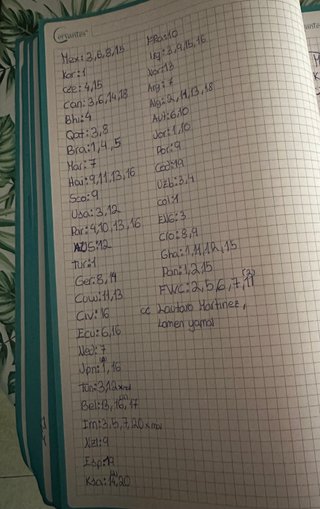 Cervantes
Mex: 3,6,8,15
Kor: 1
Cze: 4,15
Can: 3,6,14,18
Bhi: 4
Qat: 3,8
Bra: 1,4,5
Mar: 7
Hai: 9,11,13,16
Sco: 9
Usa: 3,12
Par: 4,10,13,16
AUS: 12
Tur: 1
Ger: 8,14
Cuw: 11,13
Civ: 16
Ecu: 6,16
Ned: 7
Jpn: 1,16
Tun: 3,12
Bel: 13,16,17
Irn: 3,5,7,20
Nzl: 9
Esp:
Ksa: 14,20
Fra: 10
Irq: 3,9,15,16
Nor: 13
Arg: 7
Alg: 2,11,13,18
Aut: 6,10
Jor: 1,10
Por: 9
Cod: 19
Uzb: 3,4
Col: 1
ENG: 3
Cro: 8,9
Gha: 1,11,12,15
Pan: 1,2,15
FWC: 2,5,6,7,11 (2)
CC Lautaro Martinez,
Lamen yamal